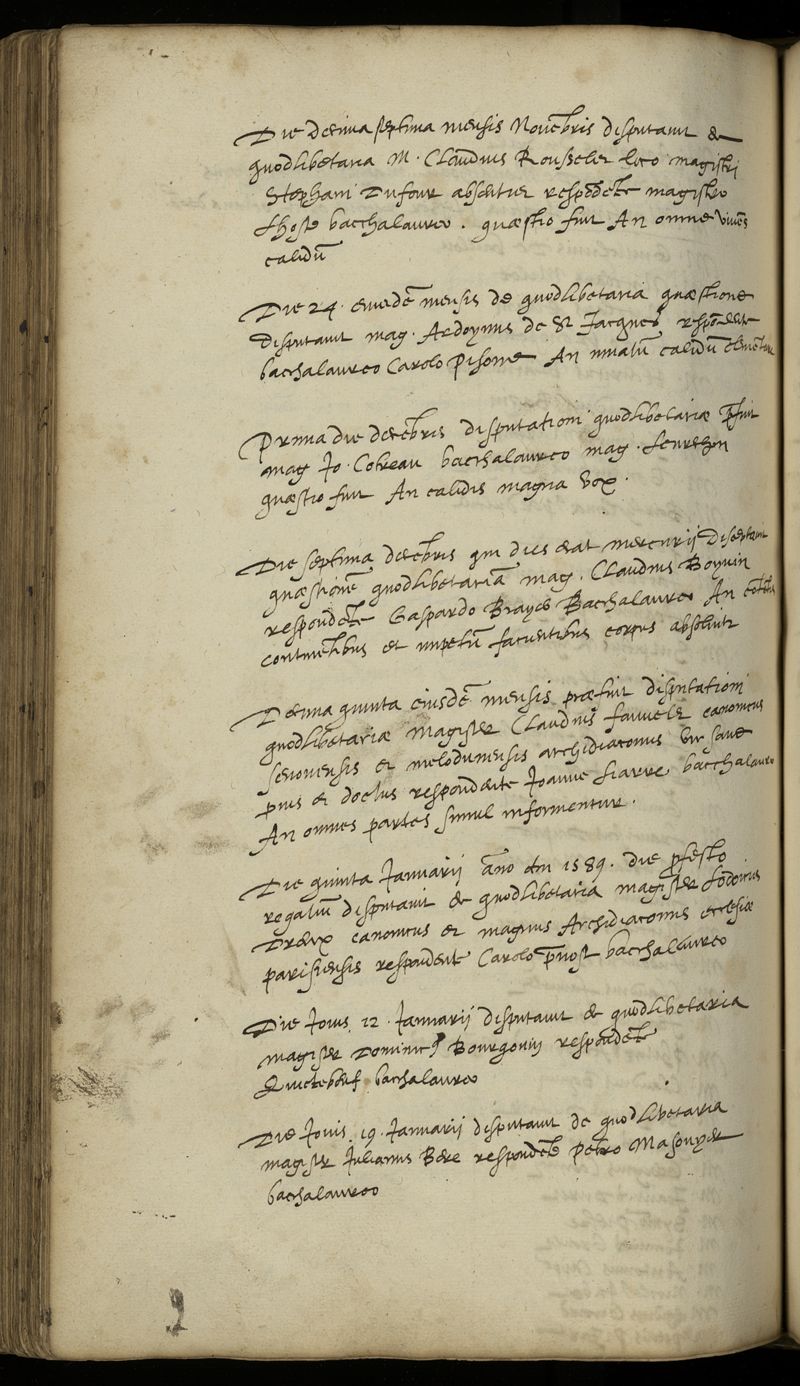 Die decima septima mensis Nouēbris disputauit de
quodlibetaria M. Claudius Rousselet loco magistri
Stephani Dufour absentis respōdēte magistro
Lhoste bacchalaureo. quæstio fuit An omne viuēs
calidū
Die 24. eiusdē mensis de quodlibetaria quæstione
disputauit mag. Ardoynus de St Jacques respōdēte
bacchalaureo Carolo Pisone An innatū calidū
Prima die decēbris disputationi quodlibetariæ p̄fuit
mag Jo. Cotreau bacchalaureo mag.
quæstio fuit An calidis magna vox.
Die septima decēbris qui dies erat mercurij
quæstionē quodlibetariā mag. Claudius Boyuin
respondēte Gaspardo Brayer Bacchalaureo An
et impetū facientibus corpus
Decima quinta eiusdē mensis præfuit disputationi
quodlibetariæ Magister Claudius fauuelet canonicus
senonensis et melodunensis archidiaconus vir sane
pius et doctus respondente Joanne Liarre bacchalaureo
An omnes partes simul informentur.
Die quinta Januarij āno dn̄i 1589. die p̄festo
regaliū disputauit de quodlibetaria magister Lodoicus
Dreux canonicus et magnus Archidiaconus ecclesiæ
parisiensis respondente Carolo p̄uost bacchalaureo
Die Jouis 12. Januarij disputauit de quodlibetaria
magister Dominicus Bourgouin respondēte
bacchalaureo
Die Jouis 19. Januarij disputauit de quodlibetaria
magister Julianus Bere respondēte Petro Masuyer
bacchalaureo